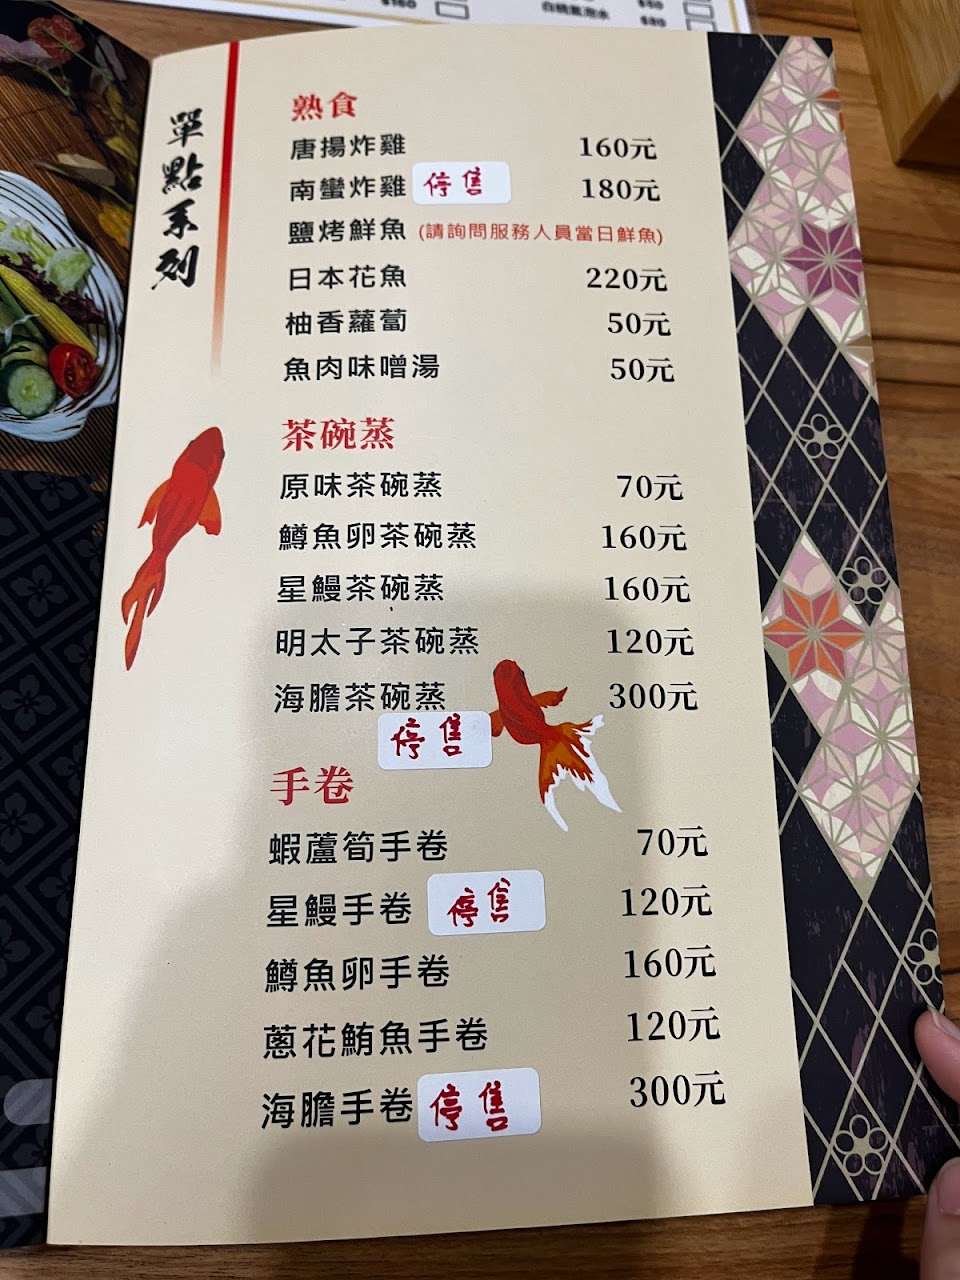 $160
$50
白桃氣泡水
$80
單點系列
熟食
唐揚炸雞 160元
南蠻炸雞 停售 180元
鹽烤鮮魚 (請詢問服務人員當日鮮魚)
日本花魚 220元
柚香蘿蔔 50元
魚肉味噌湯 50元
茶碗蒸
原味茶碗蒸 70元
鱒魚卵茶碗蒸 160元
星鰻茶碗蒸 160元
明太子茶碗蒸 120元
海膽茶碗蒸 300元
停售
手卷
蝦蘆筍手卷 70元
星鰻手卷 停售 120元
鱒魚卵手卷 160元
蔥花鮪魚手卷 120元
海膽手卷 停售 300元